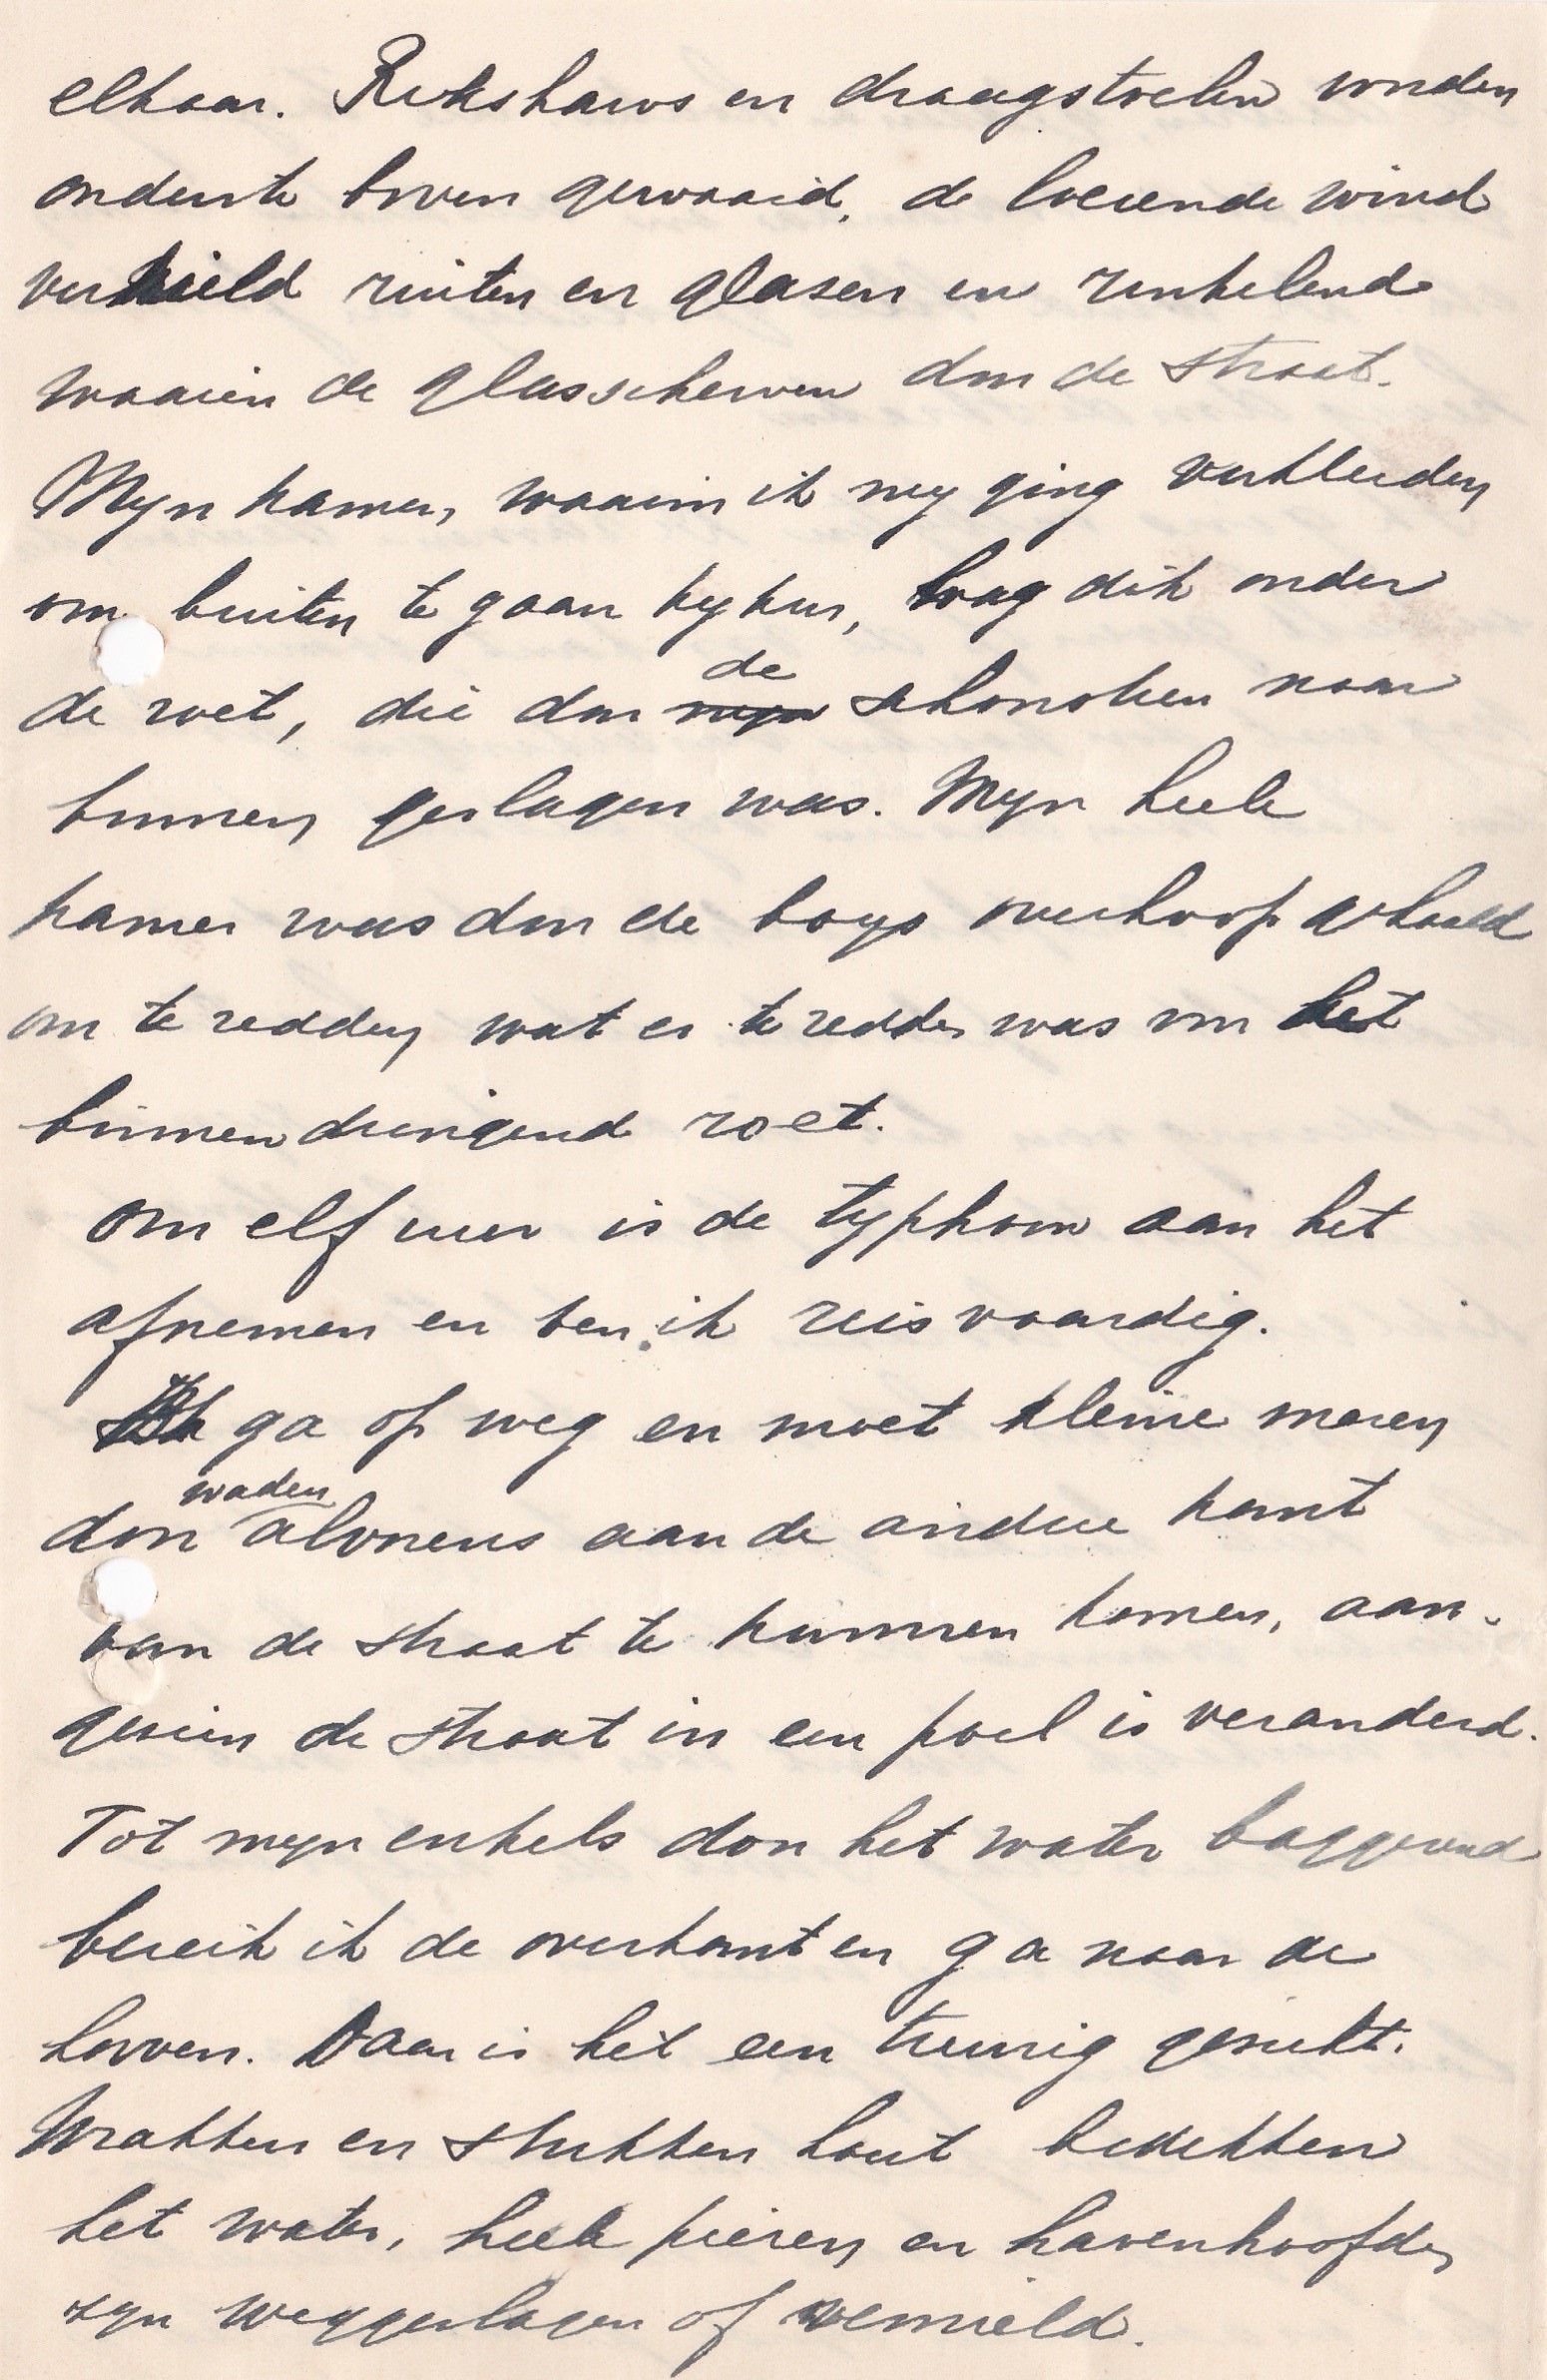 elkaar. Rikshaws en draagstoelen worden
onderste boven gewaaid, de loeiende wind
vernield ruiten en glasen en rinkelend
waaien de glasscherven door de straat.
Mijn kamer, waarin ik mij ging verkleeden
om buiten te gaan kijken, laag dik onder
de roet, die door de schoorsteen naar
binnen geslagen was. Mijn heele
kamer was door de boys overhoop gehaald
om te redden wat er te redden was van het
binnendringend roet.
Om elf uur is de typhoon aan het
afnemen en ben ik reisvaardig.
Ik ga op weg en moet kleine meren
door waden alvorens aan de andere kant
van de straat te kunnen komen, aan-
gezien de straat in een poel is veranderd.
Tot mijn enkels door het water baggerend
bereik ik de overkant en ga naar de
haven. Daar is het een treurig gezicht.
Wrakken en stukken hout bedekken
het water, heele pieren en havenhoofden
zijn weggeslagen of vernield.